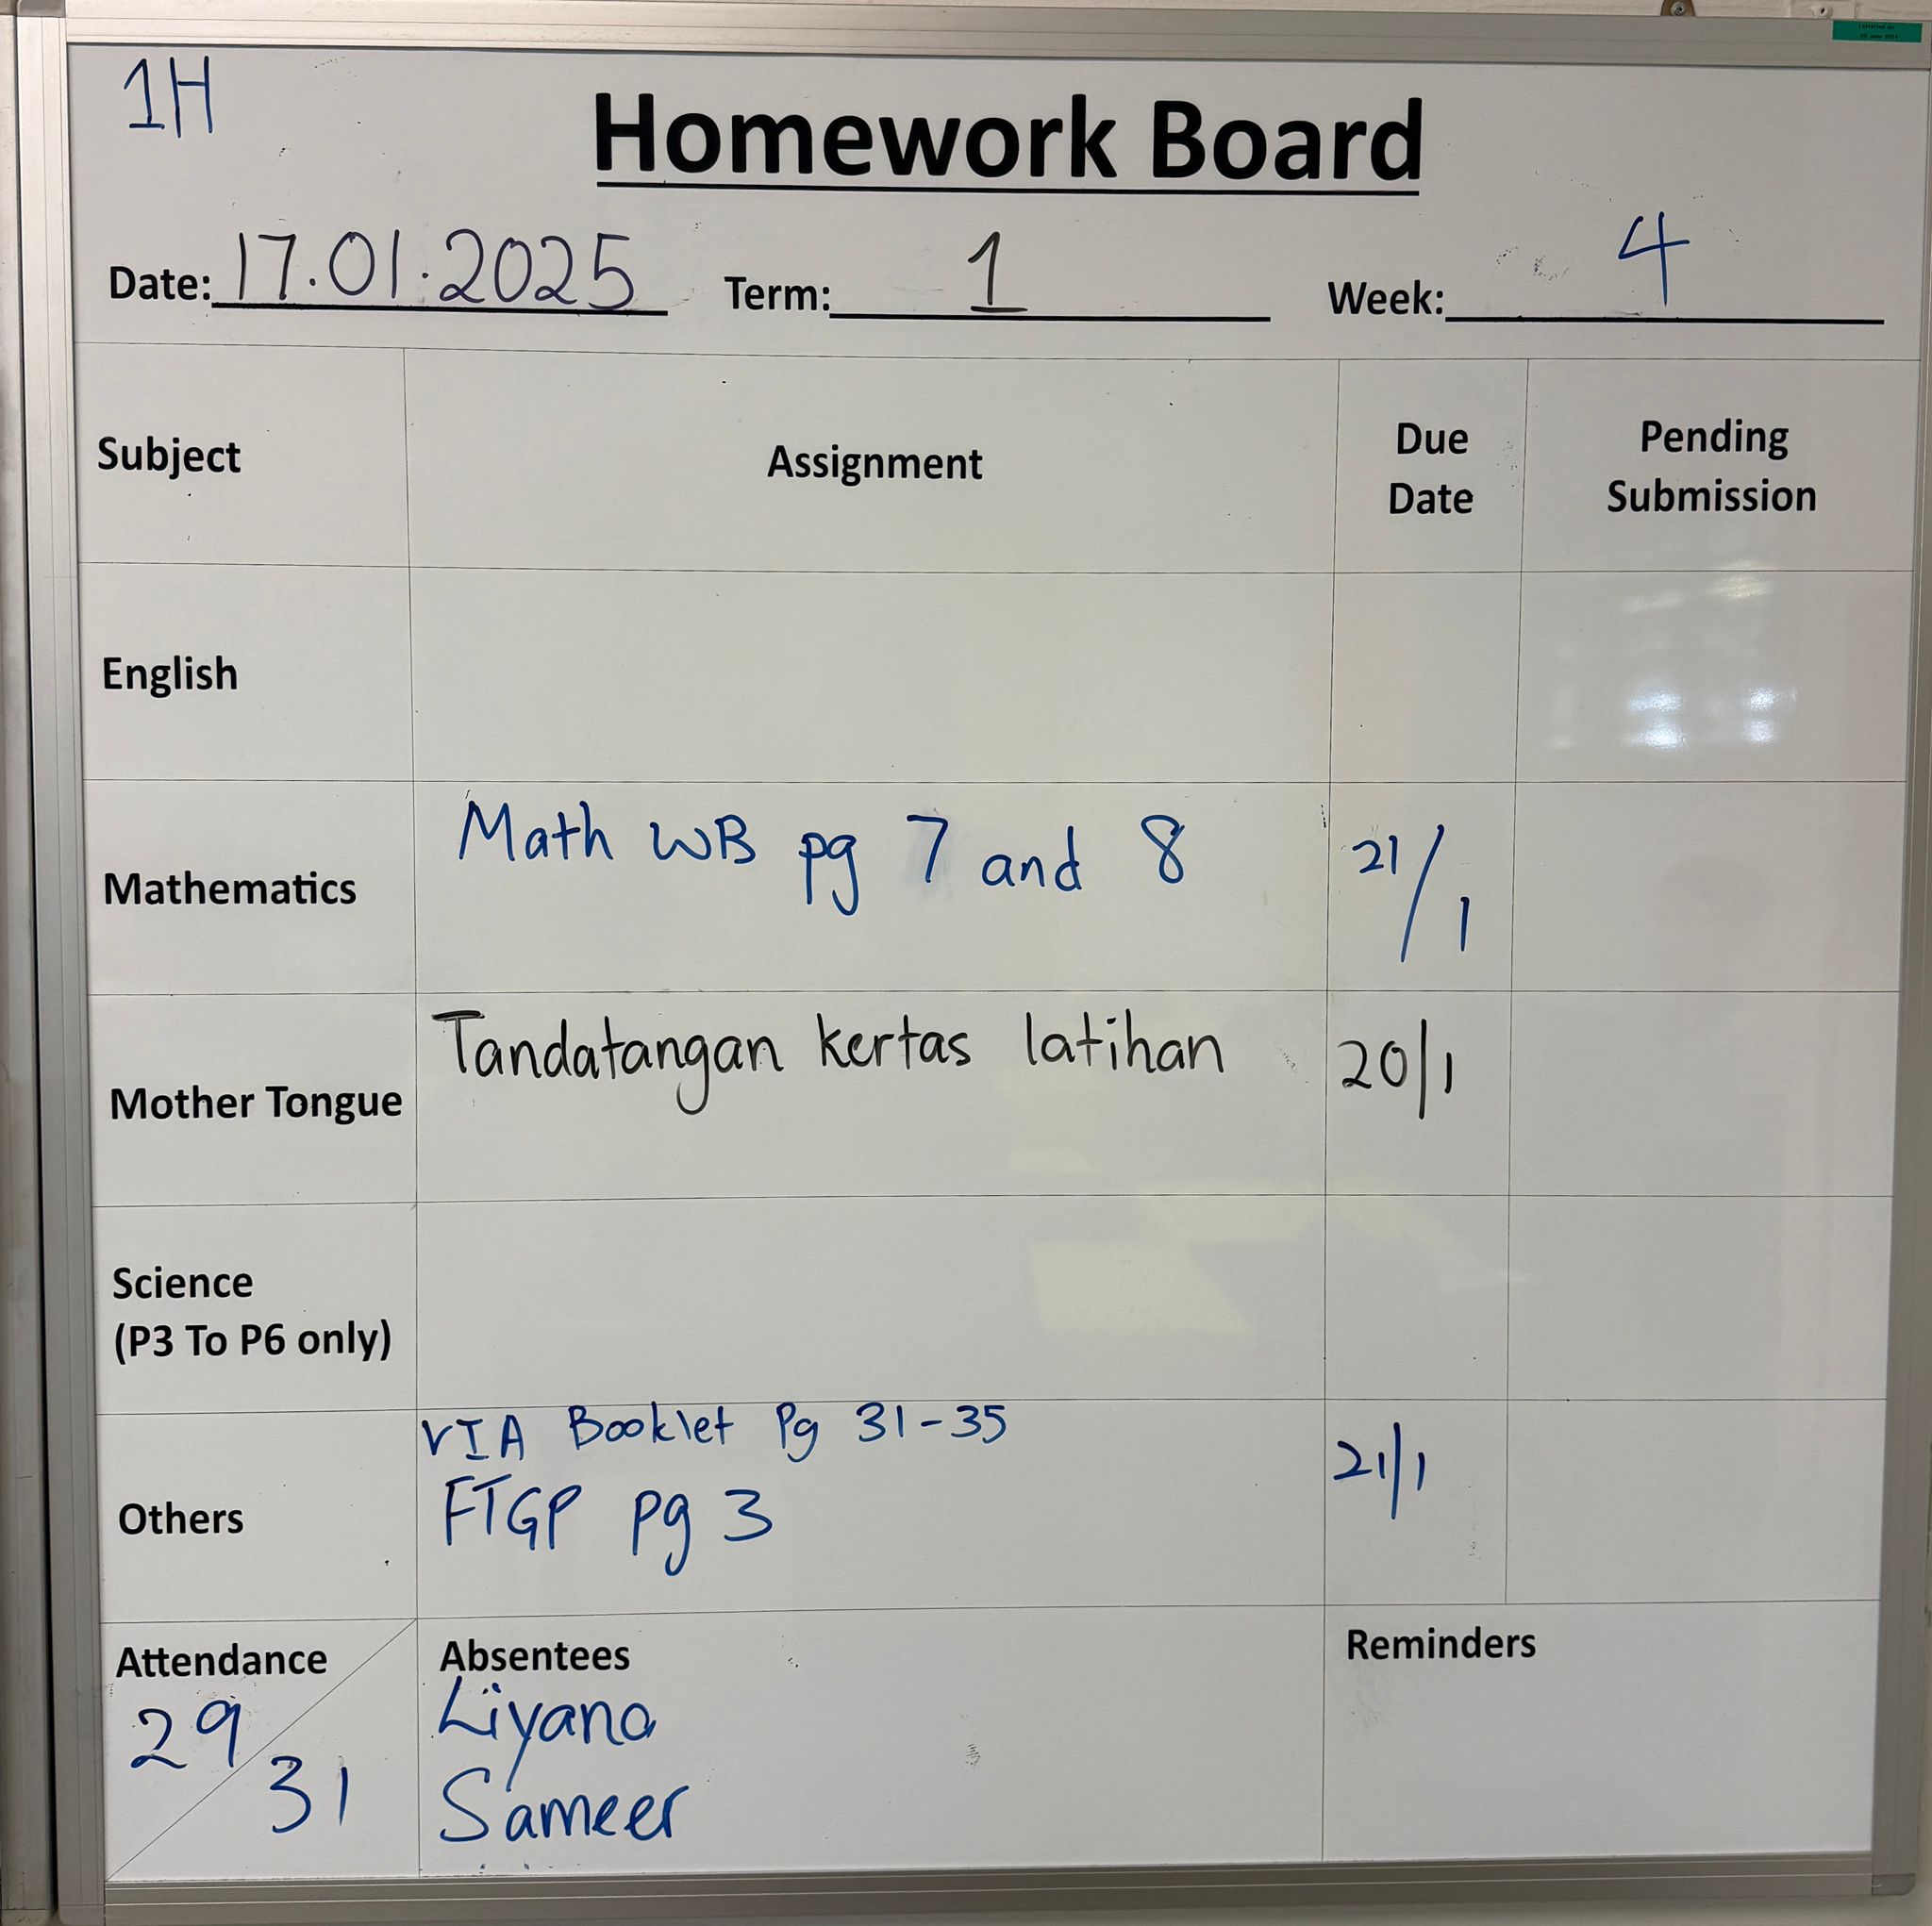 1H
Homework Board
Date: 17.01.2025 Term: 1 Week: 4
Subject Assignment Due Date Pending Submission
English
Mathematics Math WB pg 7 and 8 21/1
Mother Tongue Tandatangan kertas latihan 20/1
Science
(P3 To P6 only)
Others VIA Booklet Pg 31-35 21/1
FTGP pg 3
Attendance Absentees Reminders
29/31 Liyana
Sameer